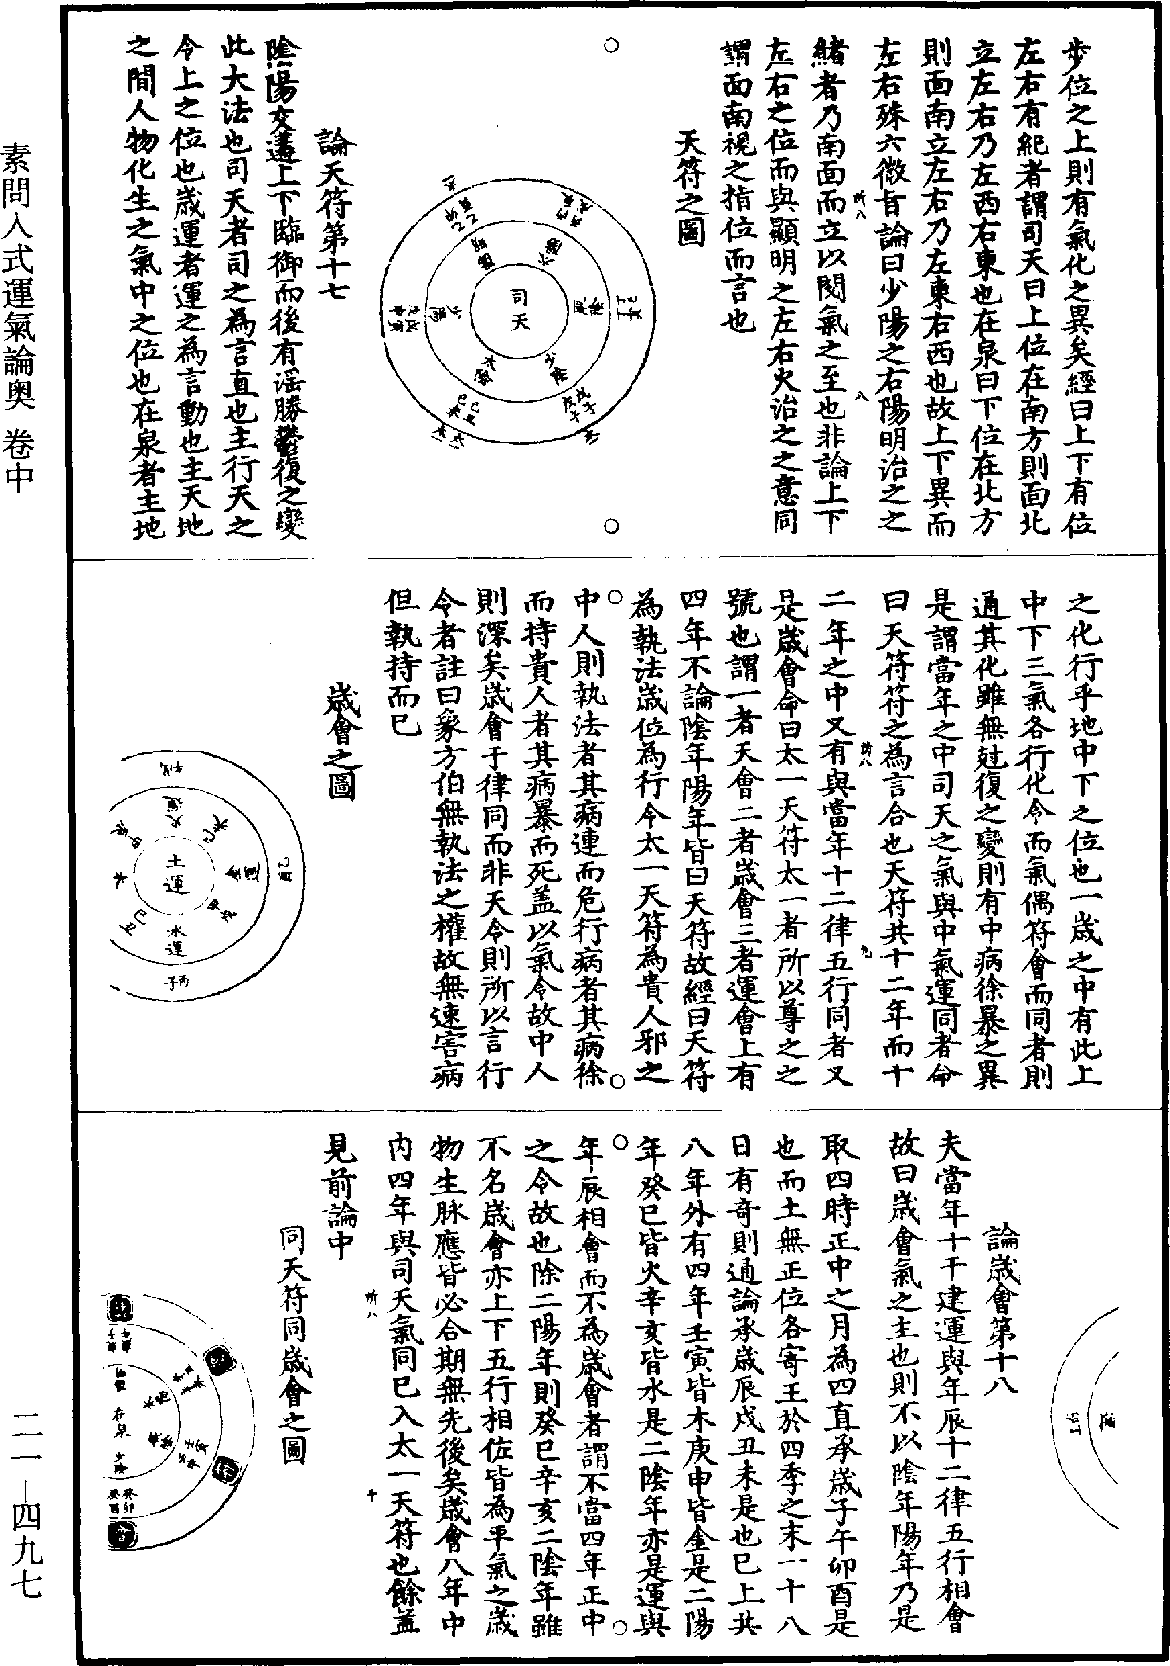 步位之上則有氣化之異矣經曰上下有位
左右有紀者謂司天曰上位在南方則面北
立左右乃左西右東也在泉曰下位在北方
則面南立左右乃左東右西也故上下異而
左右殊六微旨論曰少陽之右陽明治之之
緒者乃南面而立以閱氣之至也非論上下
左右之位而與顯明之左右火治之之意同
謂面南視之指位而言也
天符之圖
司天
論天符第十七
陰陽交遘上下臨御而後有淫勝鬱復之變
此大法也司天者司之為言直也主行天之
令上之位也歲運者運之為言動也主天地
之間人物化生之氣中之位也在泉者主地
之化行乎地中下之位也一歲之中有此上
中下三氣各行化令而氣偶符會而同者則
通其化雖無尅復之變則有中病徐暴之異
是謂當年之中司天之氣與中氣運同者命
曰天符符之為言合也天符共十二年而十
二年之中又有與當年十二律五行同者又
是歲會命曰太一天符太一者所以尊之之
號也謂一者天會二者歲會三者運會上有
四年不論陰年陽年皆曰天符故經曰天符
為執法歲位為行令太一天符為貴人邪之
中人則執法者其病連而危行病者其病徐
而持貴人者其病暴而死盖以氣令故中人
則深矣歲會于律同而非天令則所以言行
令者註曰象方伯無執法之權故無速害病
但執持而已
歲會之圖
土運
水運
論歲會第十八
夫當年十干建運與年辰十二律五行相會
故曰歲會氣之主也則不以陰年陽年乃是
取四時正中之月為四直承歲子午卯酉是
也而土無正位各寄王於四季之末一十八
日有奇則通論承歲辰戌丑未是也已上共
八年外有四年壬寅皆木庚申皆金是二陽
年癸巳皆火辛亥皆水是二陰年亦是運與
年辰相會而不為歲會者謂不當四年正中
之令故也除二陽年則癸巳辛亥二陰年雖
不名歲會亦上下五行相佐皆為平氣之歲
物生脉應皆必合期無先後矣歲會八年中
內四年與司天氣同已入太一天符也餘盖
見前論中
同天符同歲會之圖
在泉
素問入式運氣論奧 卷中
二一—四九七